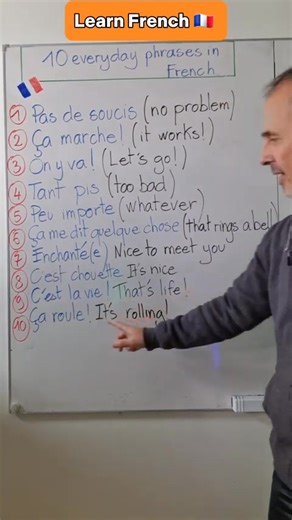 Learn French 🇫🇷
10 everyday phrases in
French
1 Pas de soucis (no problem)
2 Ça marche! (it works!)
3 On y va! (Let's go!)
4 Tant pis (too bad)
5 Peu importe (whatever)
6 Ça me dit quelque chose (that rings a bell)
7 Enchanté(e) Nice to meet you
8 C'est chouette It's nice
9 C'est la vie! That's life!
10 Ça roule! It's rolling!